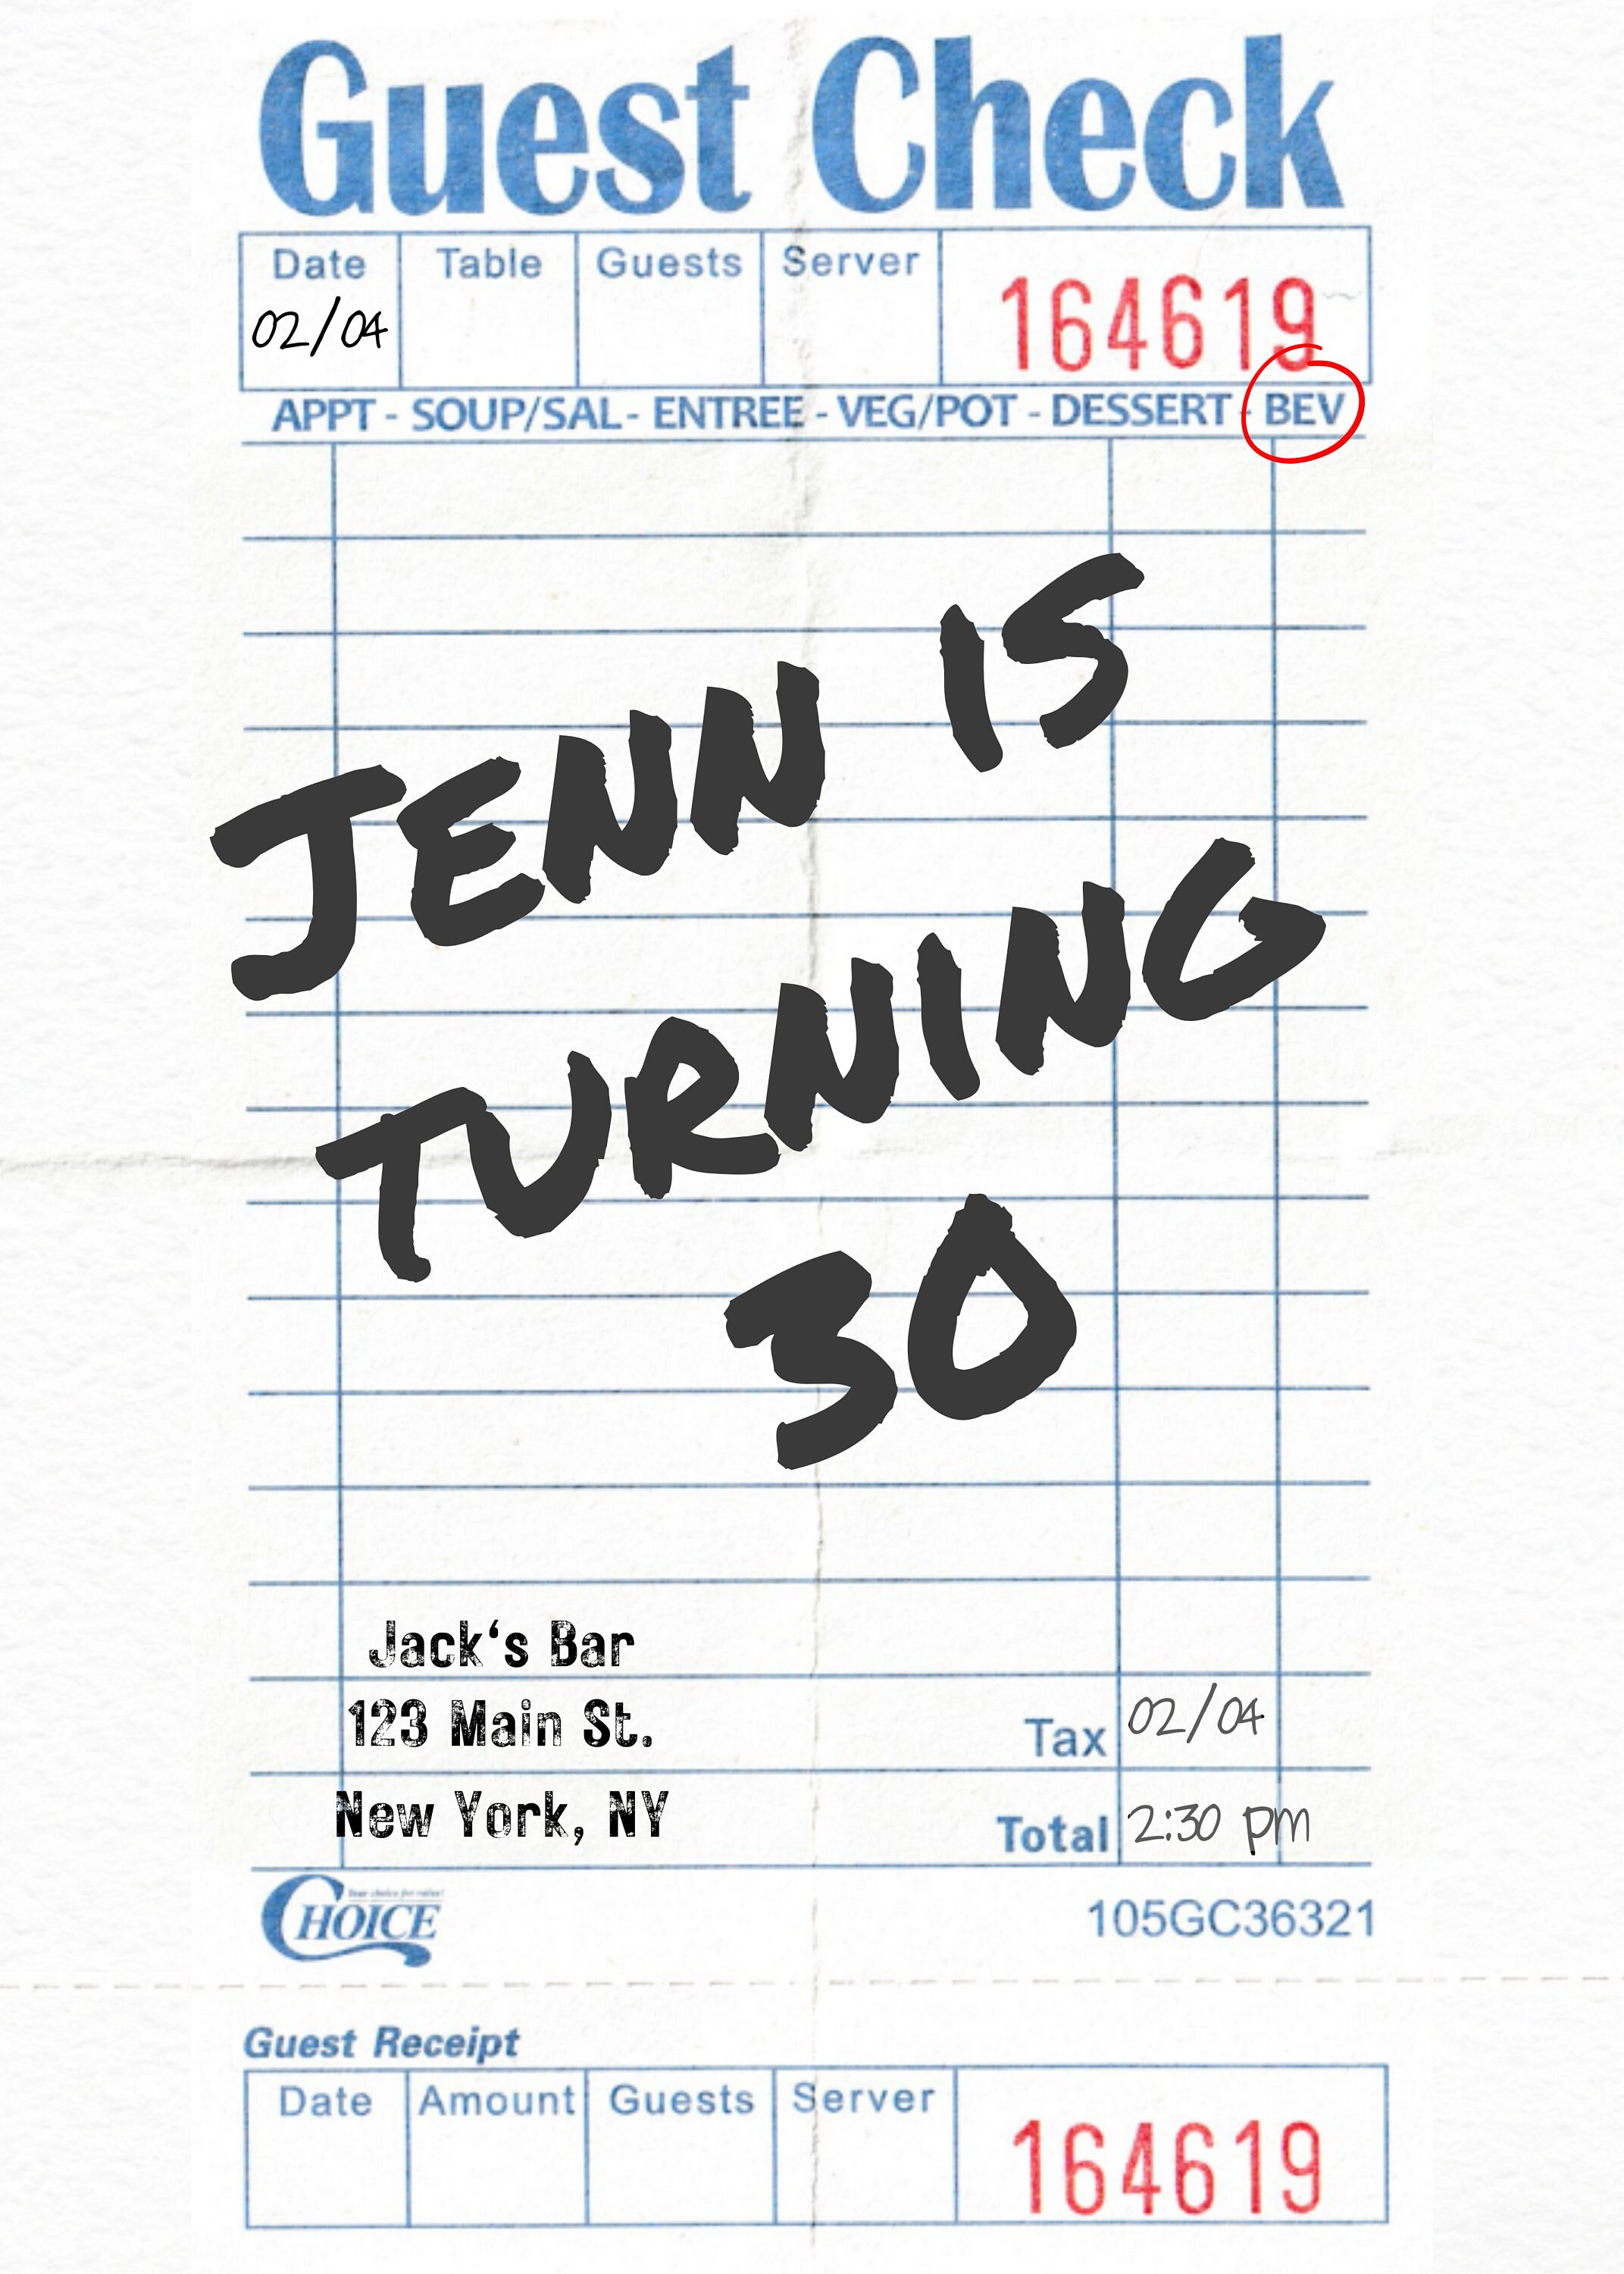 Guest Check
Date Table Guests Server
02/04 164619
APPT - SOUP/SAL- ENTREE - VEG/POT - DESSERT - BEV
JENN IS
TURNING
30
Jack‘s Bar
123 Main St.
New York, NY
Tax 02/04
Total 2:30 pm
Your choice for value!
CHOICE
105GC36321
Guest Receipt
Date Amount Guests Server
164619